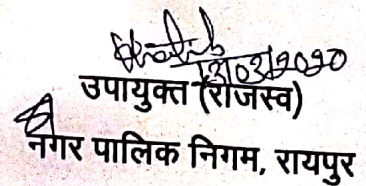 13/03/2020
उपायुक्त (राजस्व)
नगर पालिक निगम, रायपुर